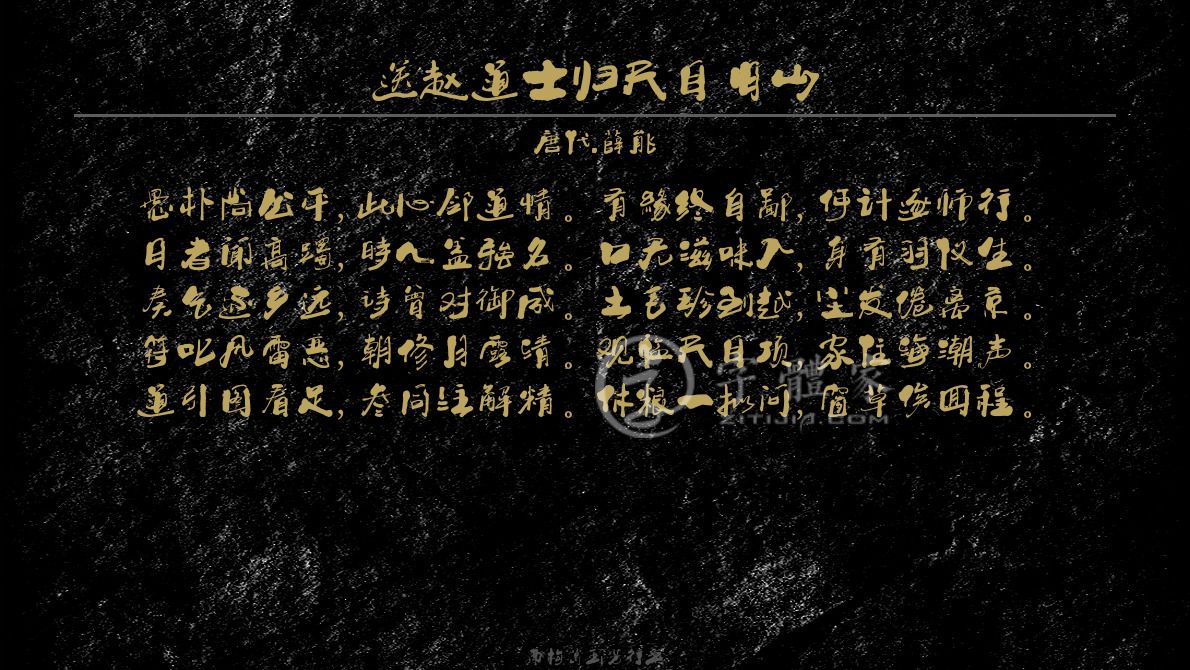 送赵道士归天目旧山
唐代.薛能
愚朴尚公平,此心邻道情。有緣终自鄙,何计逐师行。
日者闻高躅,時人盖强名。口无滋味入,身有羽仪生。
奏乞还乡远,诗曾对御成。土毛珍到越,尘发倦离京。
符叱风雷恶,朝修月露清。观临天目顶,家住海潮声。
道引图看足,参同注解精。休粮一拟问,窗草俟回程。
字體家
ZITIJIA.COM